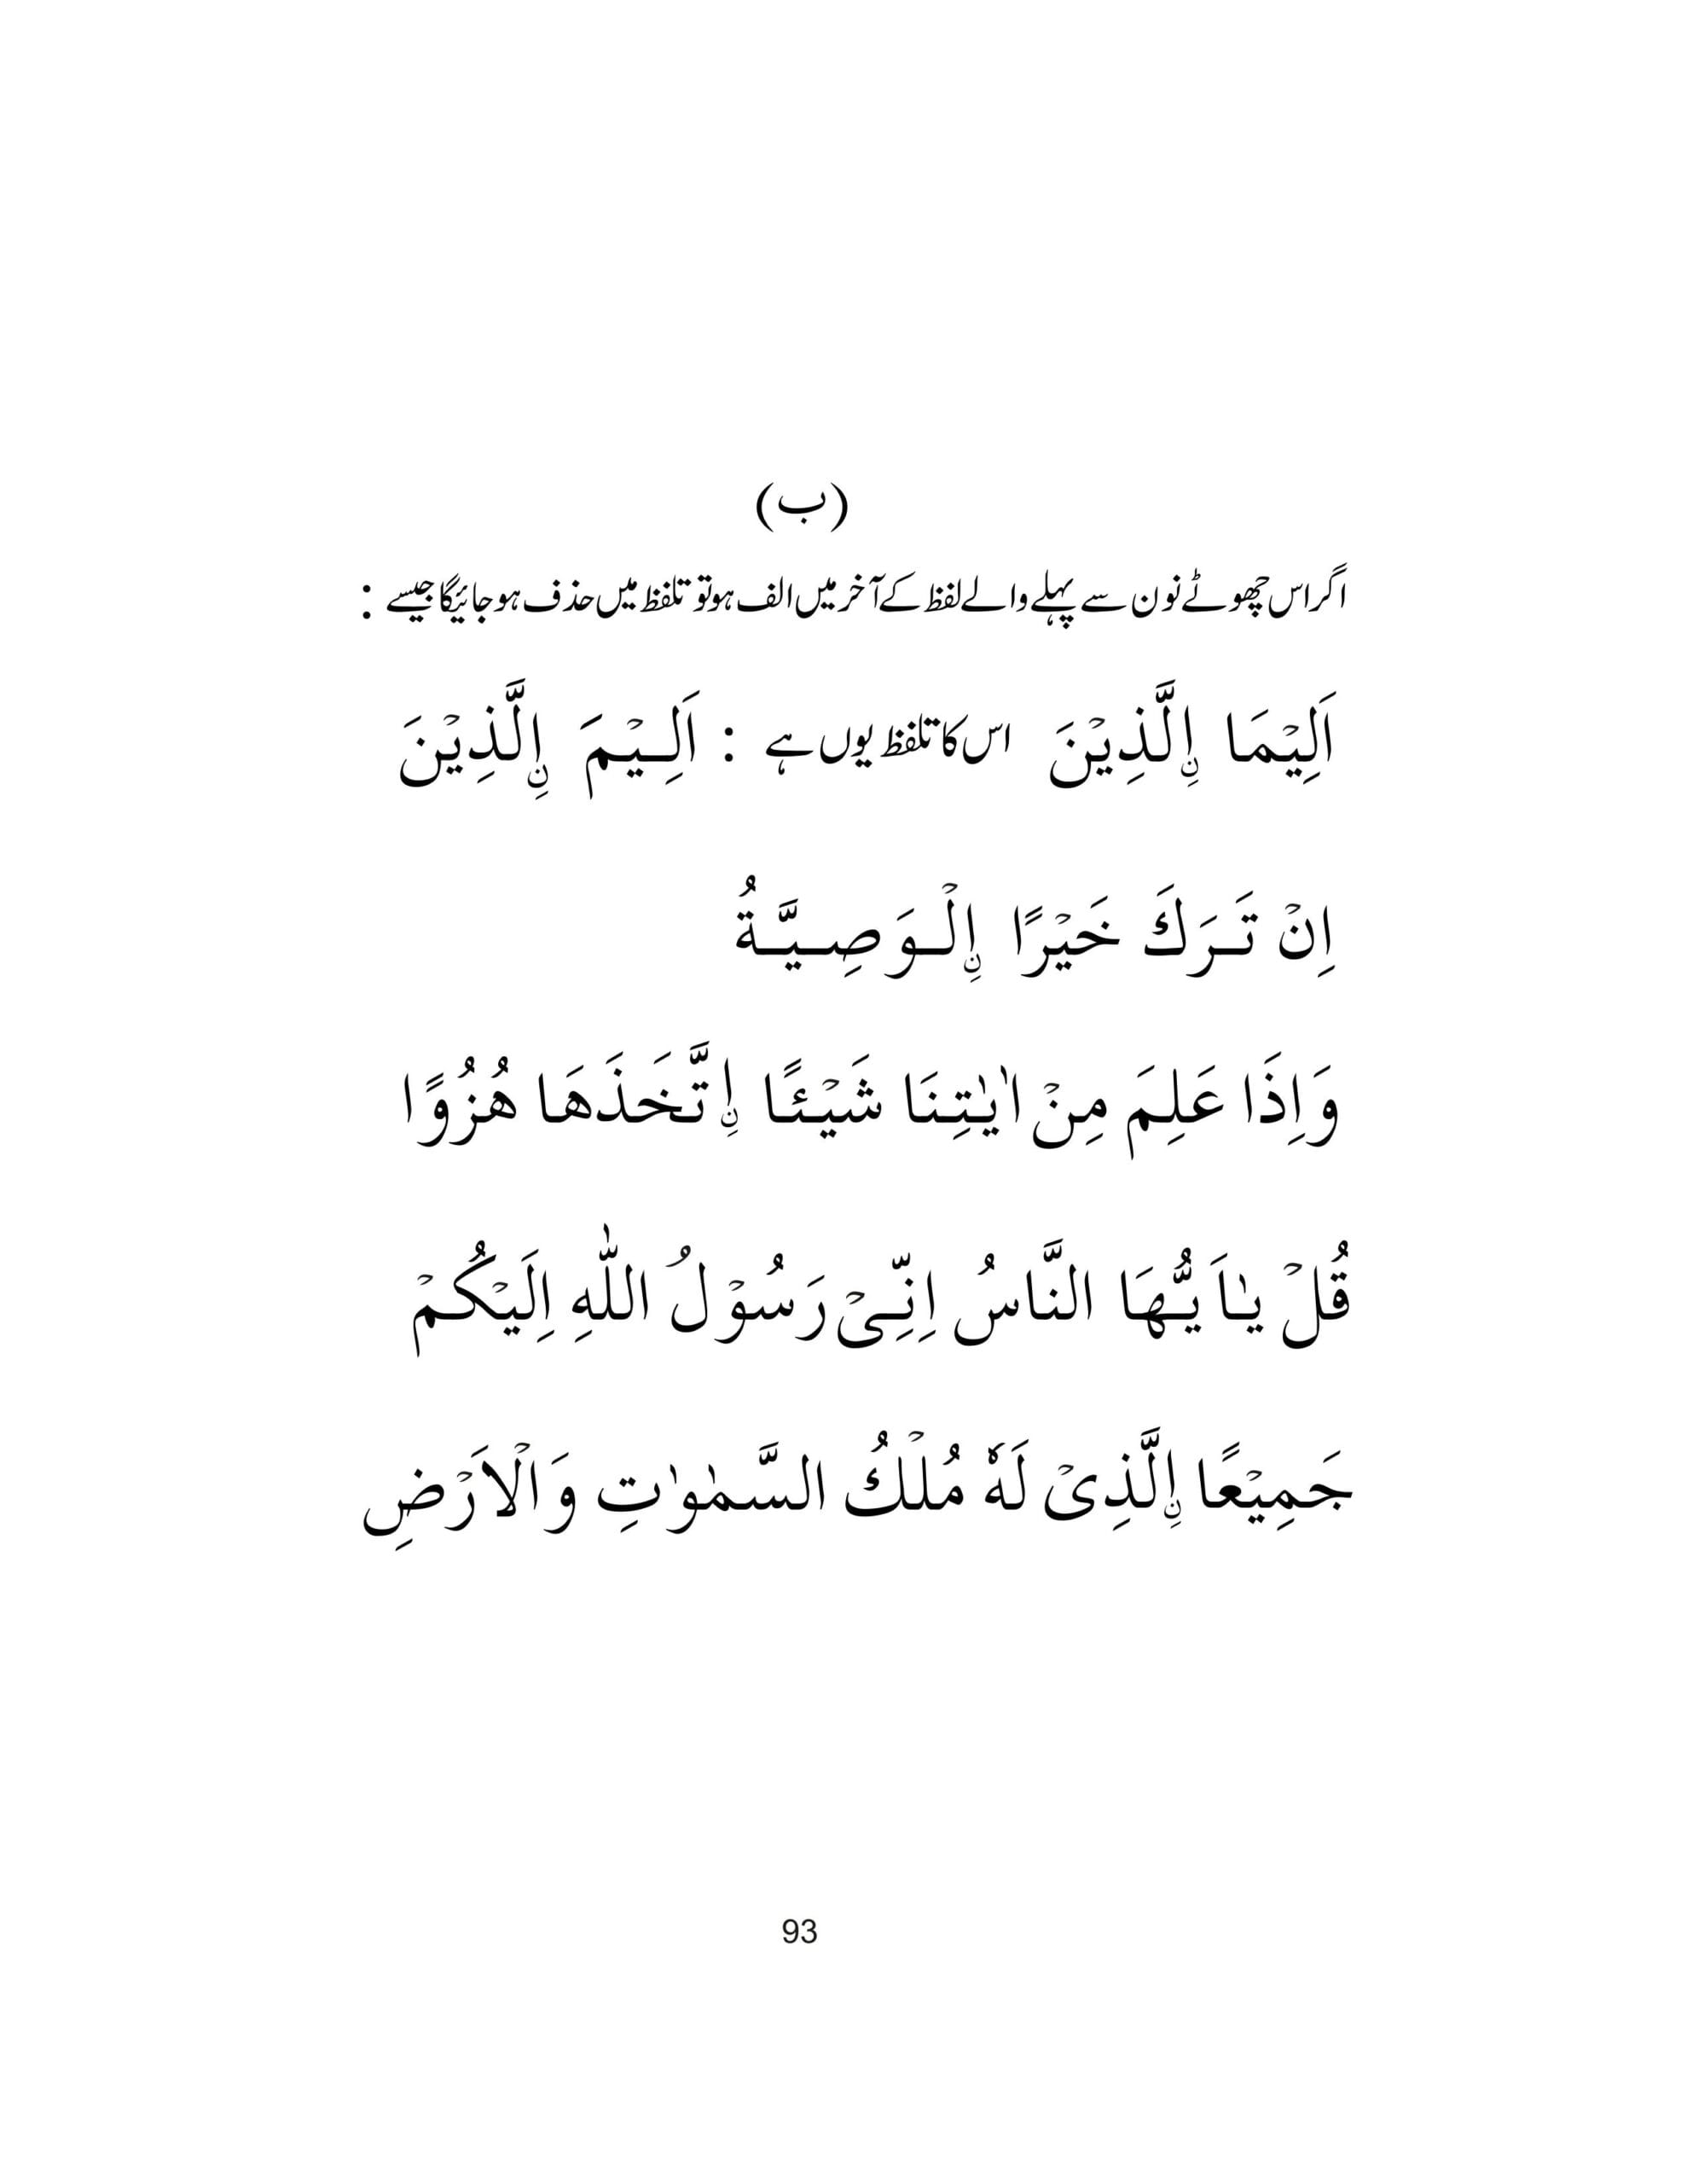 (ب)
اگر اس چھوٹے نون سے پہلے والے لفظ کے آخر میں الف ہو تو تلفظ میں حذف ہو جائیگا جیسے :
اَلِيۡمَا ۨالَّذِيۡنَ اس کا تلفظ یوں ہے : اَلِيۡمَ ۨالَّذِيۡنَ
اِنۡ تَرَكَ خَيۡرًا ۨالۡوَصِيَّةُ
وَاِذَا عَلِمَ مِنۡ اٰيٰتِنَا شَيۡـًٔا ۨاتَّخَذَهَا هُزُوًا
قُلۡ يٰاَيُّهَا النَّاسُ اِنِّىۡ رَسُوۡلُ اللّٰهِ اِلَيۡكُمۡ
جَمِيۡعًا ۨالَّذِىۡ لَهٗ مُلۡكُ السَّمٰوٰتِ وَالۡاَرۡضِ
93